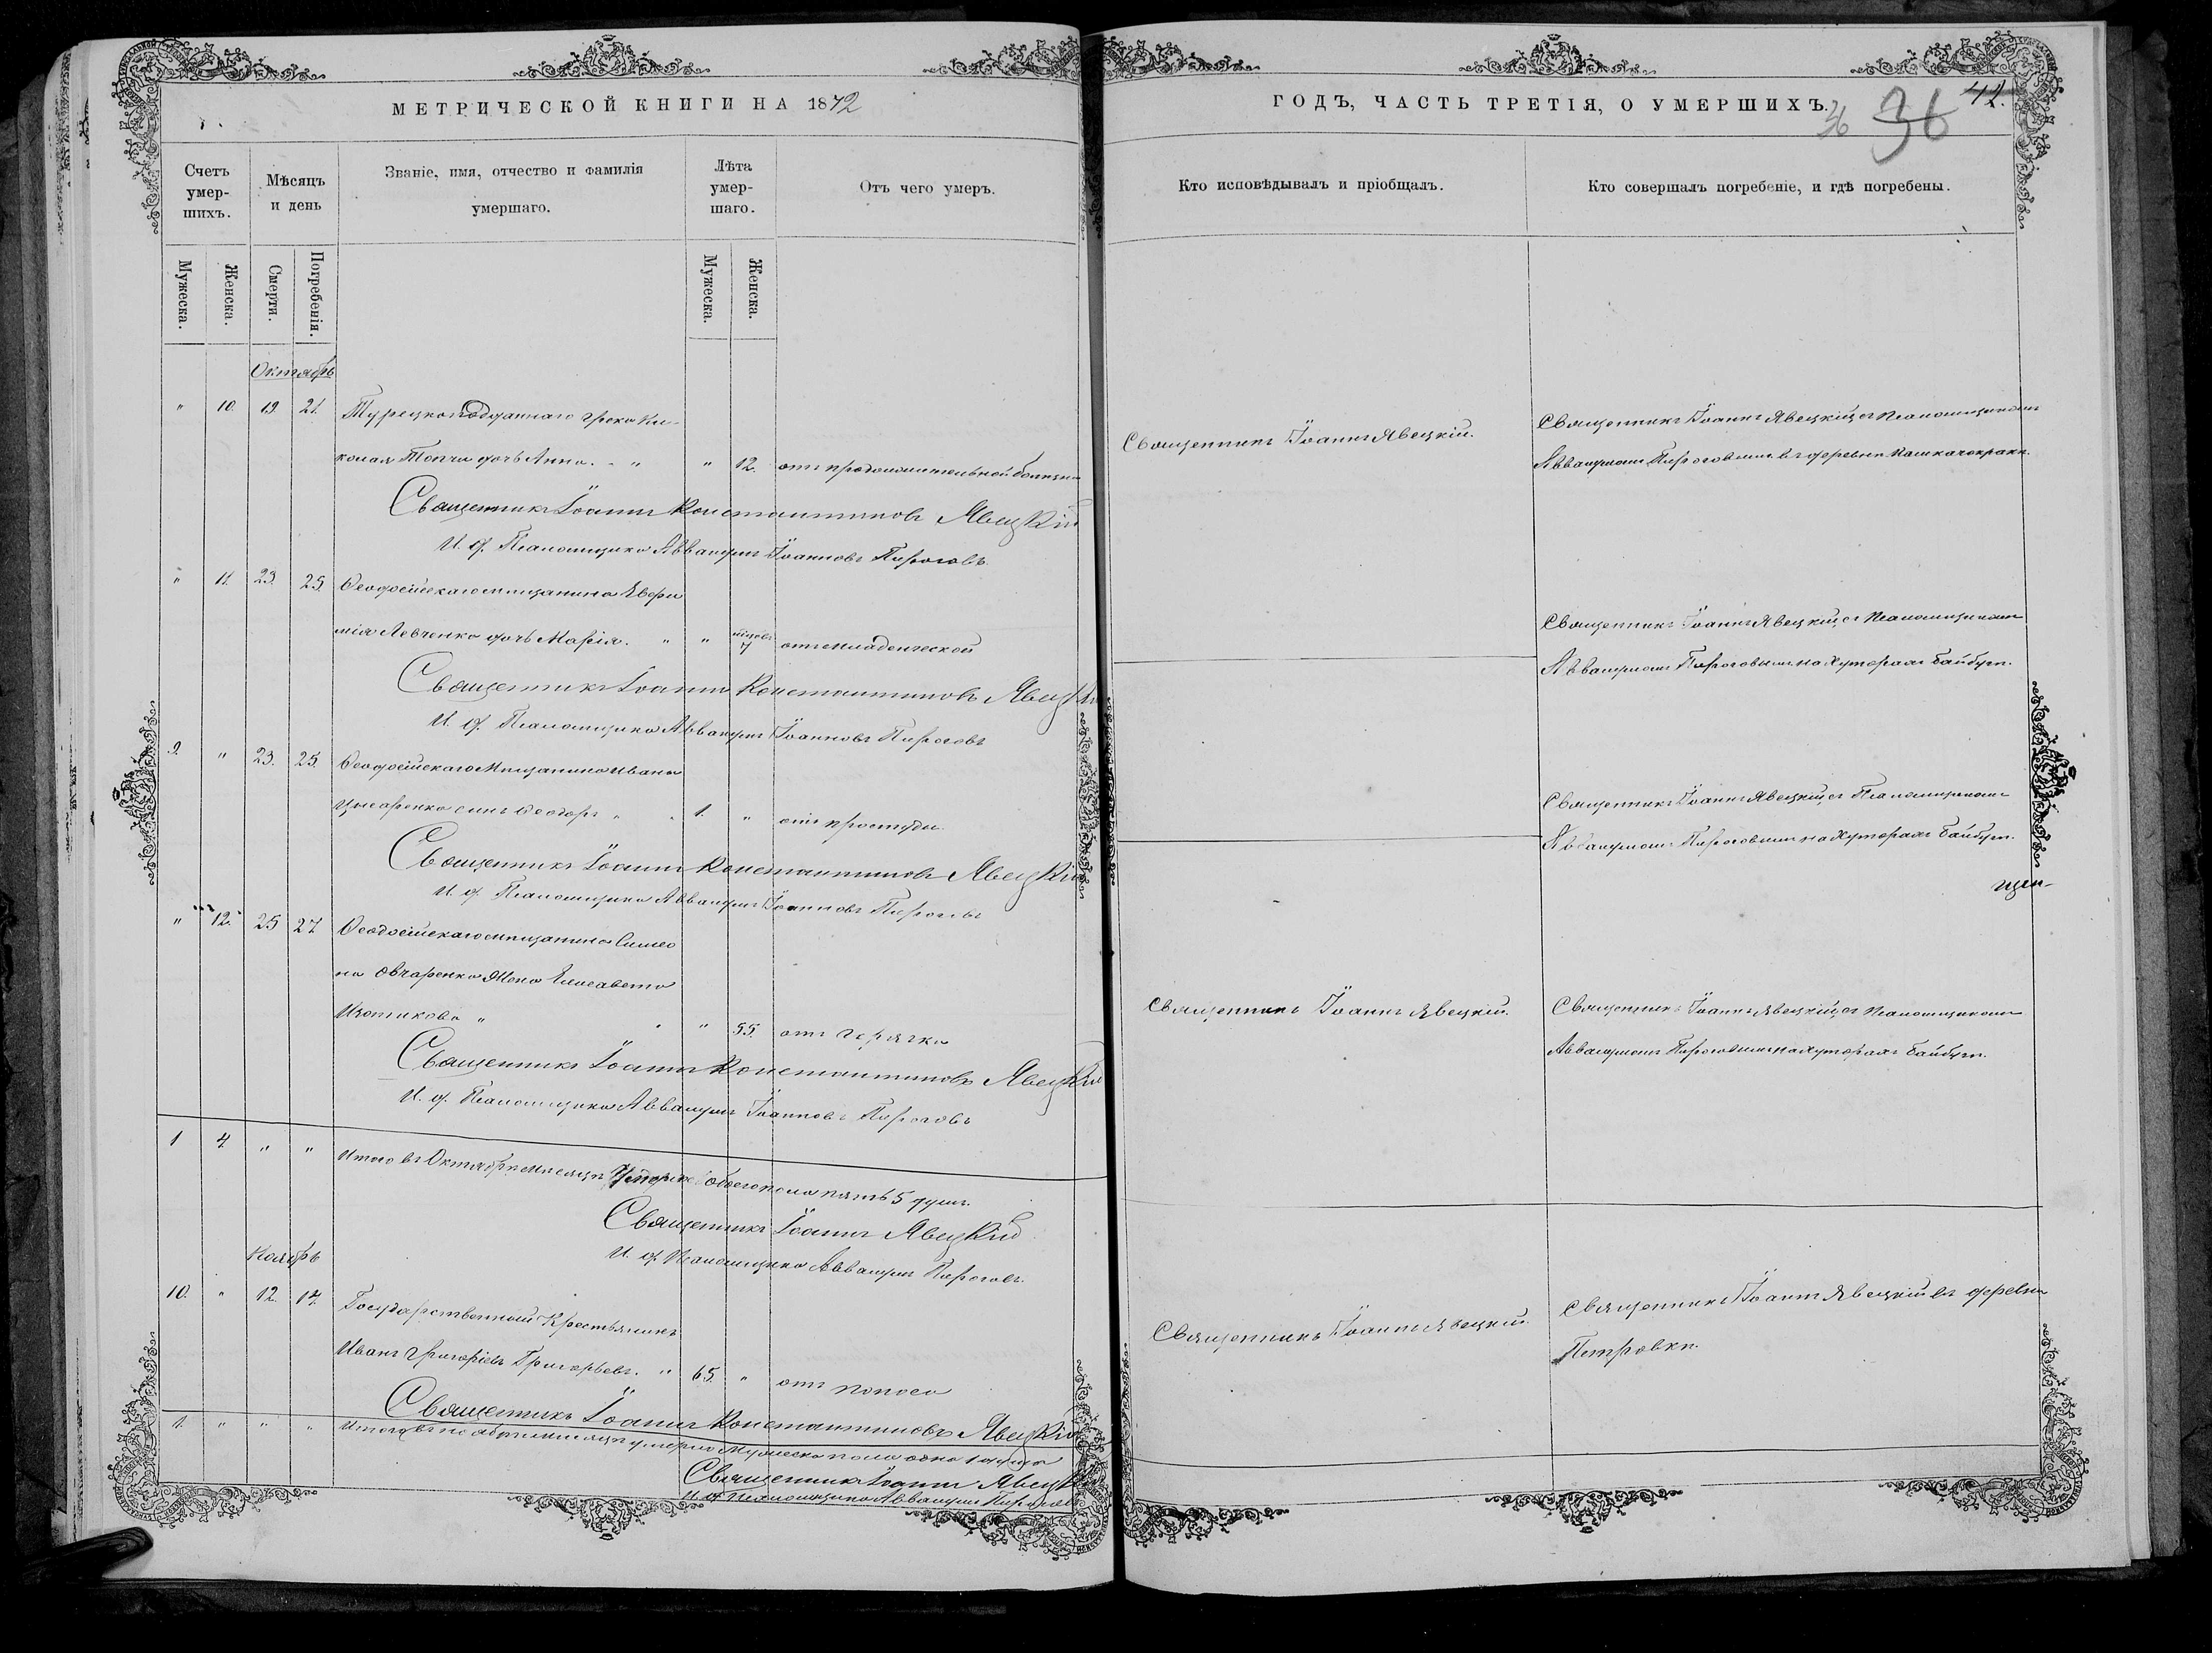 МЕТРИЧЕСКОЙ КНИГИ НА 1872
ГОДЪ, ЧАСТЬ ТРЕТІЯ, О УМЕРШИХЪ.
36 36 42.
Счетъ умер-шихъ.
Мѣсяцъ и день
Званіе, имя, отчество и фамилія умершаго.
Лѣта умер-шаго.
Отъ чего умеръ.
Кто исповѣдывалъ и пріобщалъ.
Кто совершалъ погребеніе, и гдѣ погребены.
Мужеска.
Женска.
Смерти.
Погребенія.
Мужеска.
Женска.
Октябрь
" 10. 19. 21. Турецкоподданнаго грека Ни-
колая Топчи дочь Анна. " " " 12. отъ продолжительной болѣзни
Священникъ Іоаннъ Явецкій.
Священникъ Іоаннъ Явецкій съ Псаломщикомъ
Аввакумомъ Пироговымъ въ деревни
Священникъ Іоаннъ Константиновъ Явецкій
И. д. Псаломщика Аввакумъ Іоанновъ Пироговъ
" 11. 23. 25. Феодосійскаго мѣщанина Евфи
мія Левченко дочь Марія. " " 7 отъ младенческой
Священникъ Іоаннъ Явецкій съ Псаломщикомъ
Аввакумомъ Пироговымъ на хуторахъ Байбуги.
Священникъ Іоаннъ Константиновъ Явецкій
И. д. Псаломщика Аввакумъ Іоанновъ Пироговъ
9. " 23. 25. Феодосійскаго Мѣщанина Ивана
сынъ Феодоръ " " 1. " отъ простуды.
Священникъ Іоаннъ Явецкій съ Псаломщикомъ
Аввакумомъ Пироговымъ на хуторахъ Байбуги.
Священникъ Іоаннъ Константиновъ Явецкій
И. д. Псаломщика Аввакумъ Іоанновъ Пироговъ
" 12. 25 27 Феодосійскаго мѣщанина Симео
на Овчаренко Жена Елисавета
" " " 55. отъ горячки
Священникъ Іоаннъ Явецкій.
Священникъ Іоаннъ Явецкій съ Псаломщикомъ
Аввакумомъ Пироговымъ на хуторахъ Байбуги.
Священникъ Іоаннъ Константиновъ Явецкій
И. д. Псаломщика Аввакумъ Іоанновъ Пироговъ
1 4 " " Итого въ Октябрѣ мѣсяцѣ Умерло обоего пола пять 5 душъ.
Священникъ Іоаннъ Явецкій
И. д. Псаломщика Аввакумъ Пироговъ.
Ноябрь
10. " 12. 17. Государственный Крестьянинъ
Иванъ Григоріевъ Григорьевъ. " 65. " отъ поноса
Священникъ Іоаннъ Явецкій.
Священникъ Іоаннъ Явецкій въ деревни
Петровки.
Священникъ Іоаннъ Константиновъ Явецкій
1. " " " Итого въ ноябрѣ мѣсяцѣ умерло Мужеска пола одна 1 душа
Священникъ Іоаннъ Явецкій
И. д. Псаломщика Аввакумъ Пироговъ